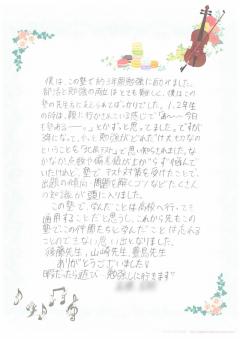 僕は、この塾で約3年間勉強に励みました。
部活と勉強の両立はとても難しく、僕はこの
塾の先生方に支えられてばっかりでした。1、2年生
の時は、親に行かされている感じで「あ〜〜今日
も塾ある〜〜。」とかずっと思ってました。ですが
3年になって、やっと勉強がどれだけ大切なの
ということを「北辰テスト」で思い知らされました。な
かなか点数や偏差値が上がらず悩んで
いたけれど、塾でテスト対策を受けたことで、
出題の傾向・問題を解くコツなどたくさん
の知識が頭に入りました。
この塾で学んだことは高校へ行っても
通用することだと思うし、これから先もこの
塾で、この仲間たちと学んだことは忘れる
ことのできない思い出となりました。
後藤先生、山崎先生、豊島先生
ありがとうございました!
暇だったら遊び…勉強しに行きます!!